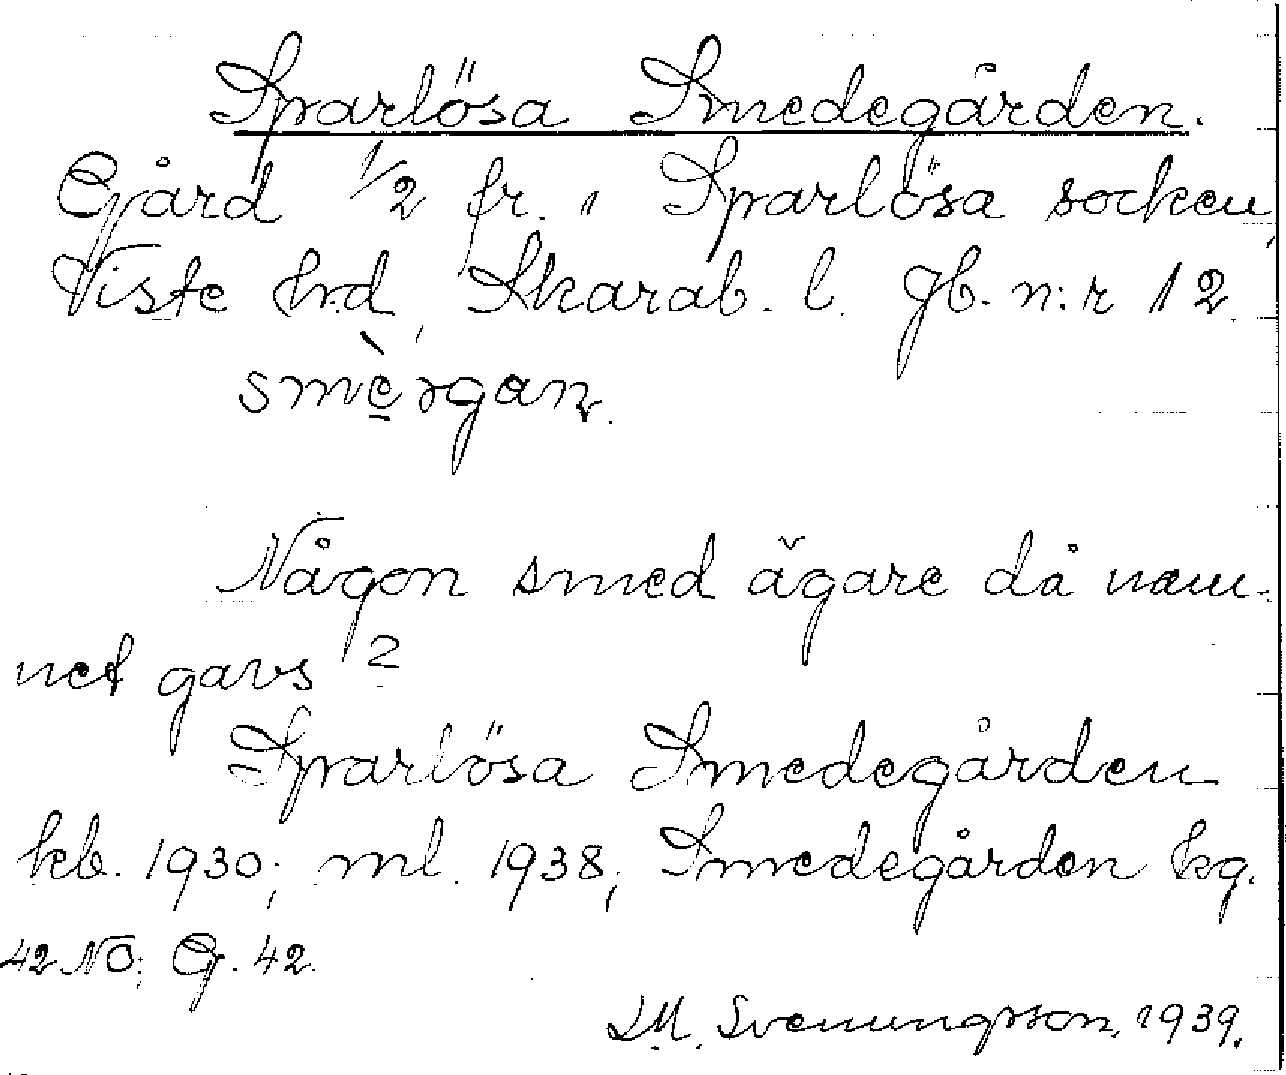 Sparlösa Smedegården.
Gård 1/2 fr. i Sparlösa socken,
Viste hd, Skarab. l. Jb. n:r 12.
smè̠rgan.
Någon smed ägare då nam-
net gavs?
Sparlösa Smedegården
kb. 1930; ml. 1938; Smedegården kg.
42 NO; G. 42.
D.M. Svenungsson, 1939.